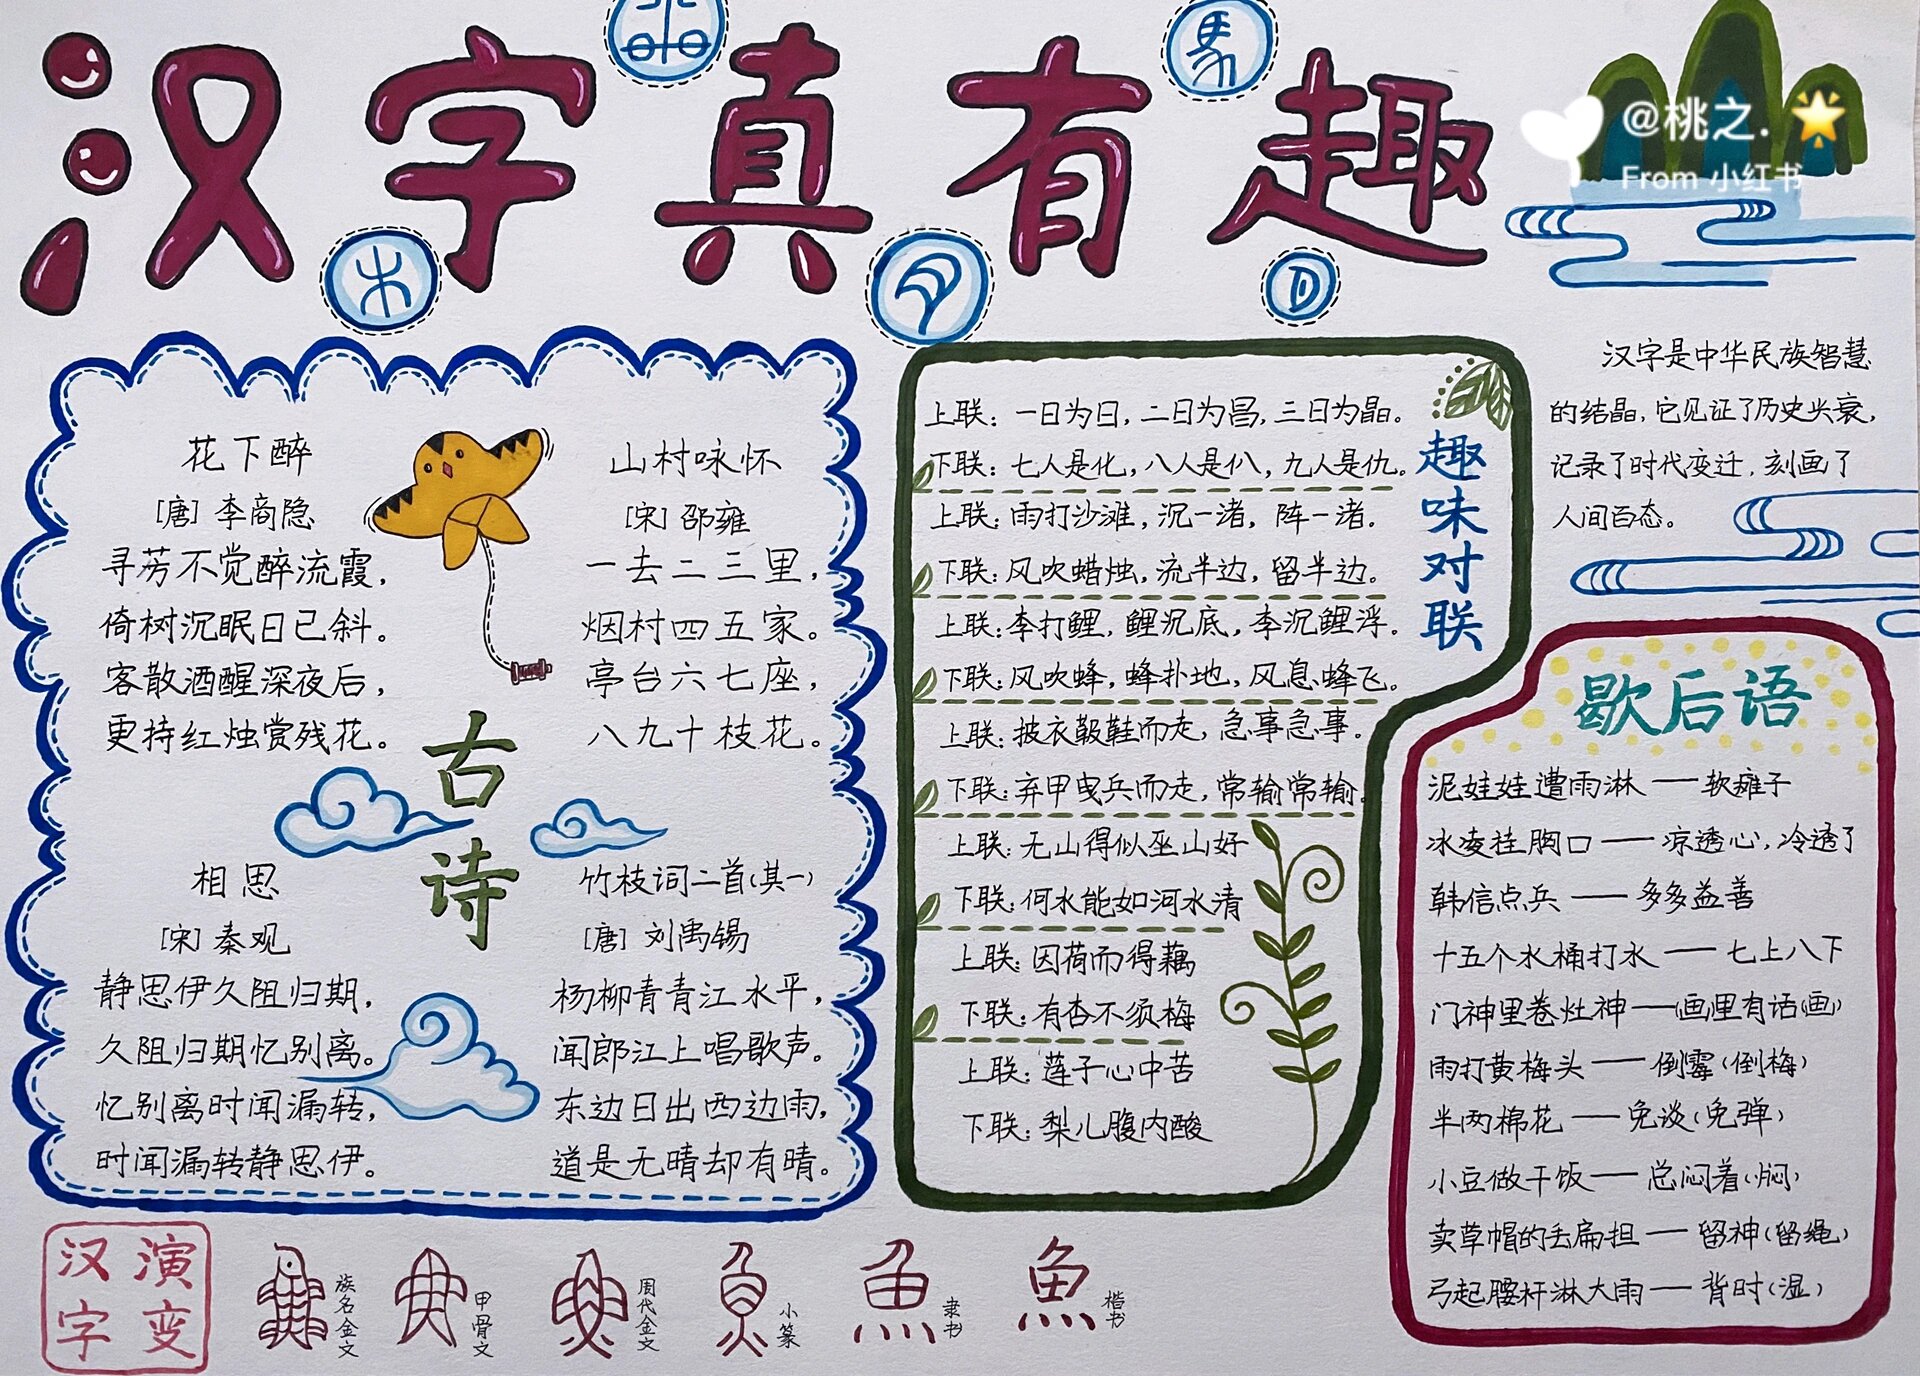 汉字真有趣
@桃之.
From 小红书
花下醉
[唐] 李商隐
寻芳不觉醉流霞，
倚树沉眠日已斜。
客散酒醒深夜后，
更持红烛赏残花。
山村咏怀
[宋] 邵雍
一去二三里，
烟村四五家。
亭台六七座，
八九十枝花。
古诗
相思
[宋] 秦观
静思伊久阻归期，
久阻归期忆别离。
忆别离时闻漏转，
时闻漏转静思伊。
竹枝词二首(其一)
[唐] 刘禹锡
杨柳青青江水平，
闻郎江上唱歌声。
东边日出西边雨，
道是无晴却有晴。
趣味对联
上联：一日为日，二日为昌，三日为晶。
下联：七人是化，八人是仈，九人是仇。
上联：雨打沙滩，沉一渚，陈一渚.
下联：风吹蜡烛，流半边，留半边。
上联：李打鲤，鲤沉底，李沉鲤浮。
下联：风吹蜂，蜂扑地，风息蜂飞。
上联：披衣靸鞋而走，急事急事。
下联：弃甲曳兵而走，常输常输。
上联：无山得似巫山好
下联：何水能如河水清
上联：因荷而得藕
下联：有杏不须梅
上联：莲子心中苦
下联：梨儿腹内酸
汉字是中华民族智慧
的结晶，它见证了历史兴衰，
记录了时代变迁，刻画了
人间百态。
歇后语
泥娃娃遭雨淋——软瘫子
冰凌挂胸口——凉透心，冷透了
韩信点兵——多多益善
十五个水桶打水——七上八下
门神里卷灶神——画里有话(画)
雨打黄梅头——倒霉(倒梅)
半两棉花——免谈(免弹)
小豆做干饭——总闷着(焖)
卖草帽的丢扁担——留神(留绳)
弓起腰杆淋大雨——背时(湿)
汉字演变
族名金文
甲骨文
周代金文
小篆
隶书
魚
楷书